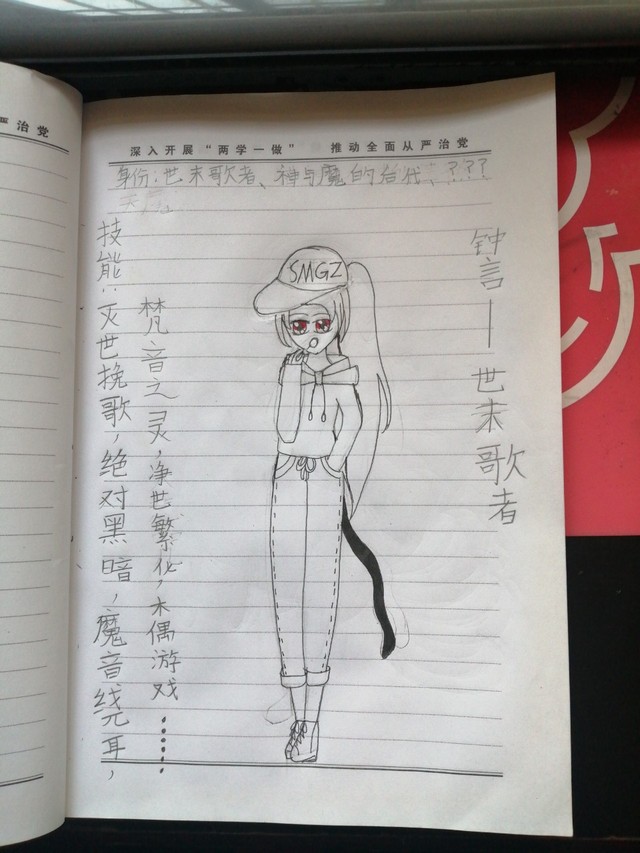 严治党
深入开展“两学一做” 推动全面从严治党
身份:世末歌者、神与魔的后代、???
钟言—世末歌者
SMGZ
技能:灭世挽歌,绝对黑暗,魔音绕耳,
梵音之灵,净世繁化,木偶游戏……